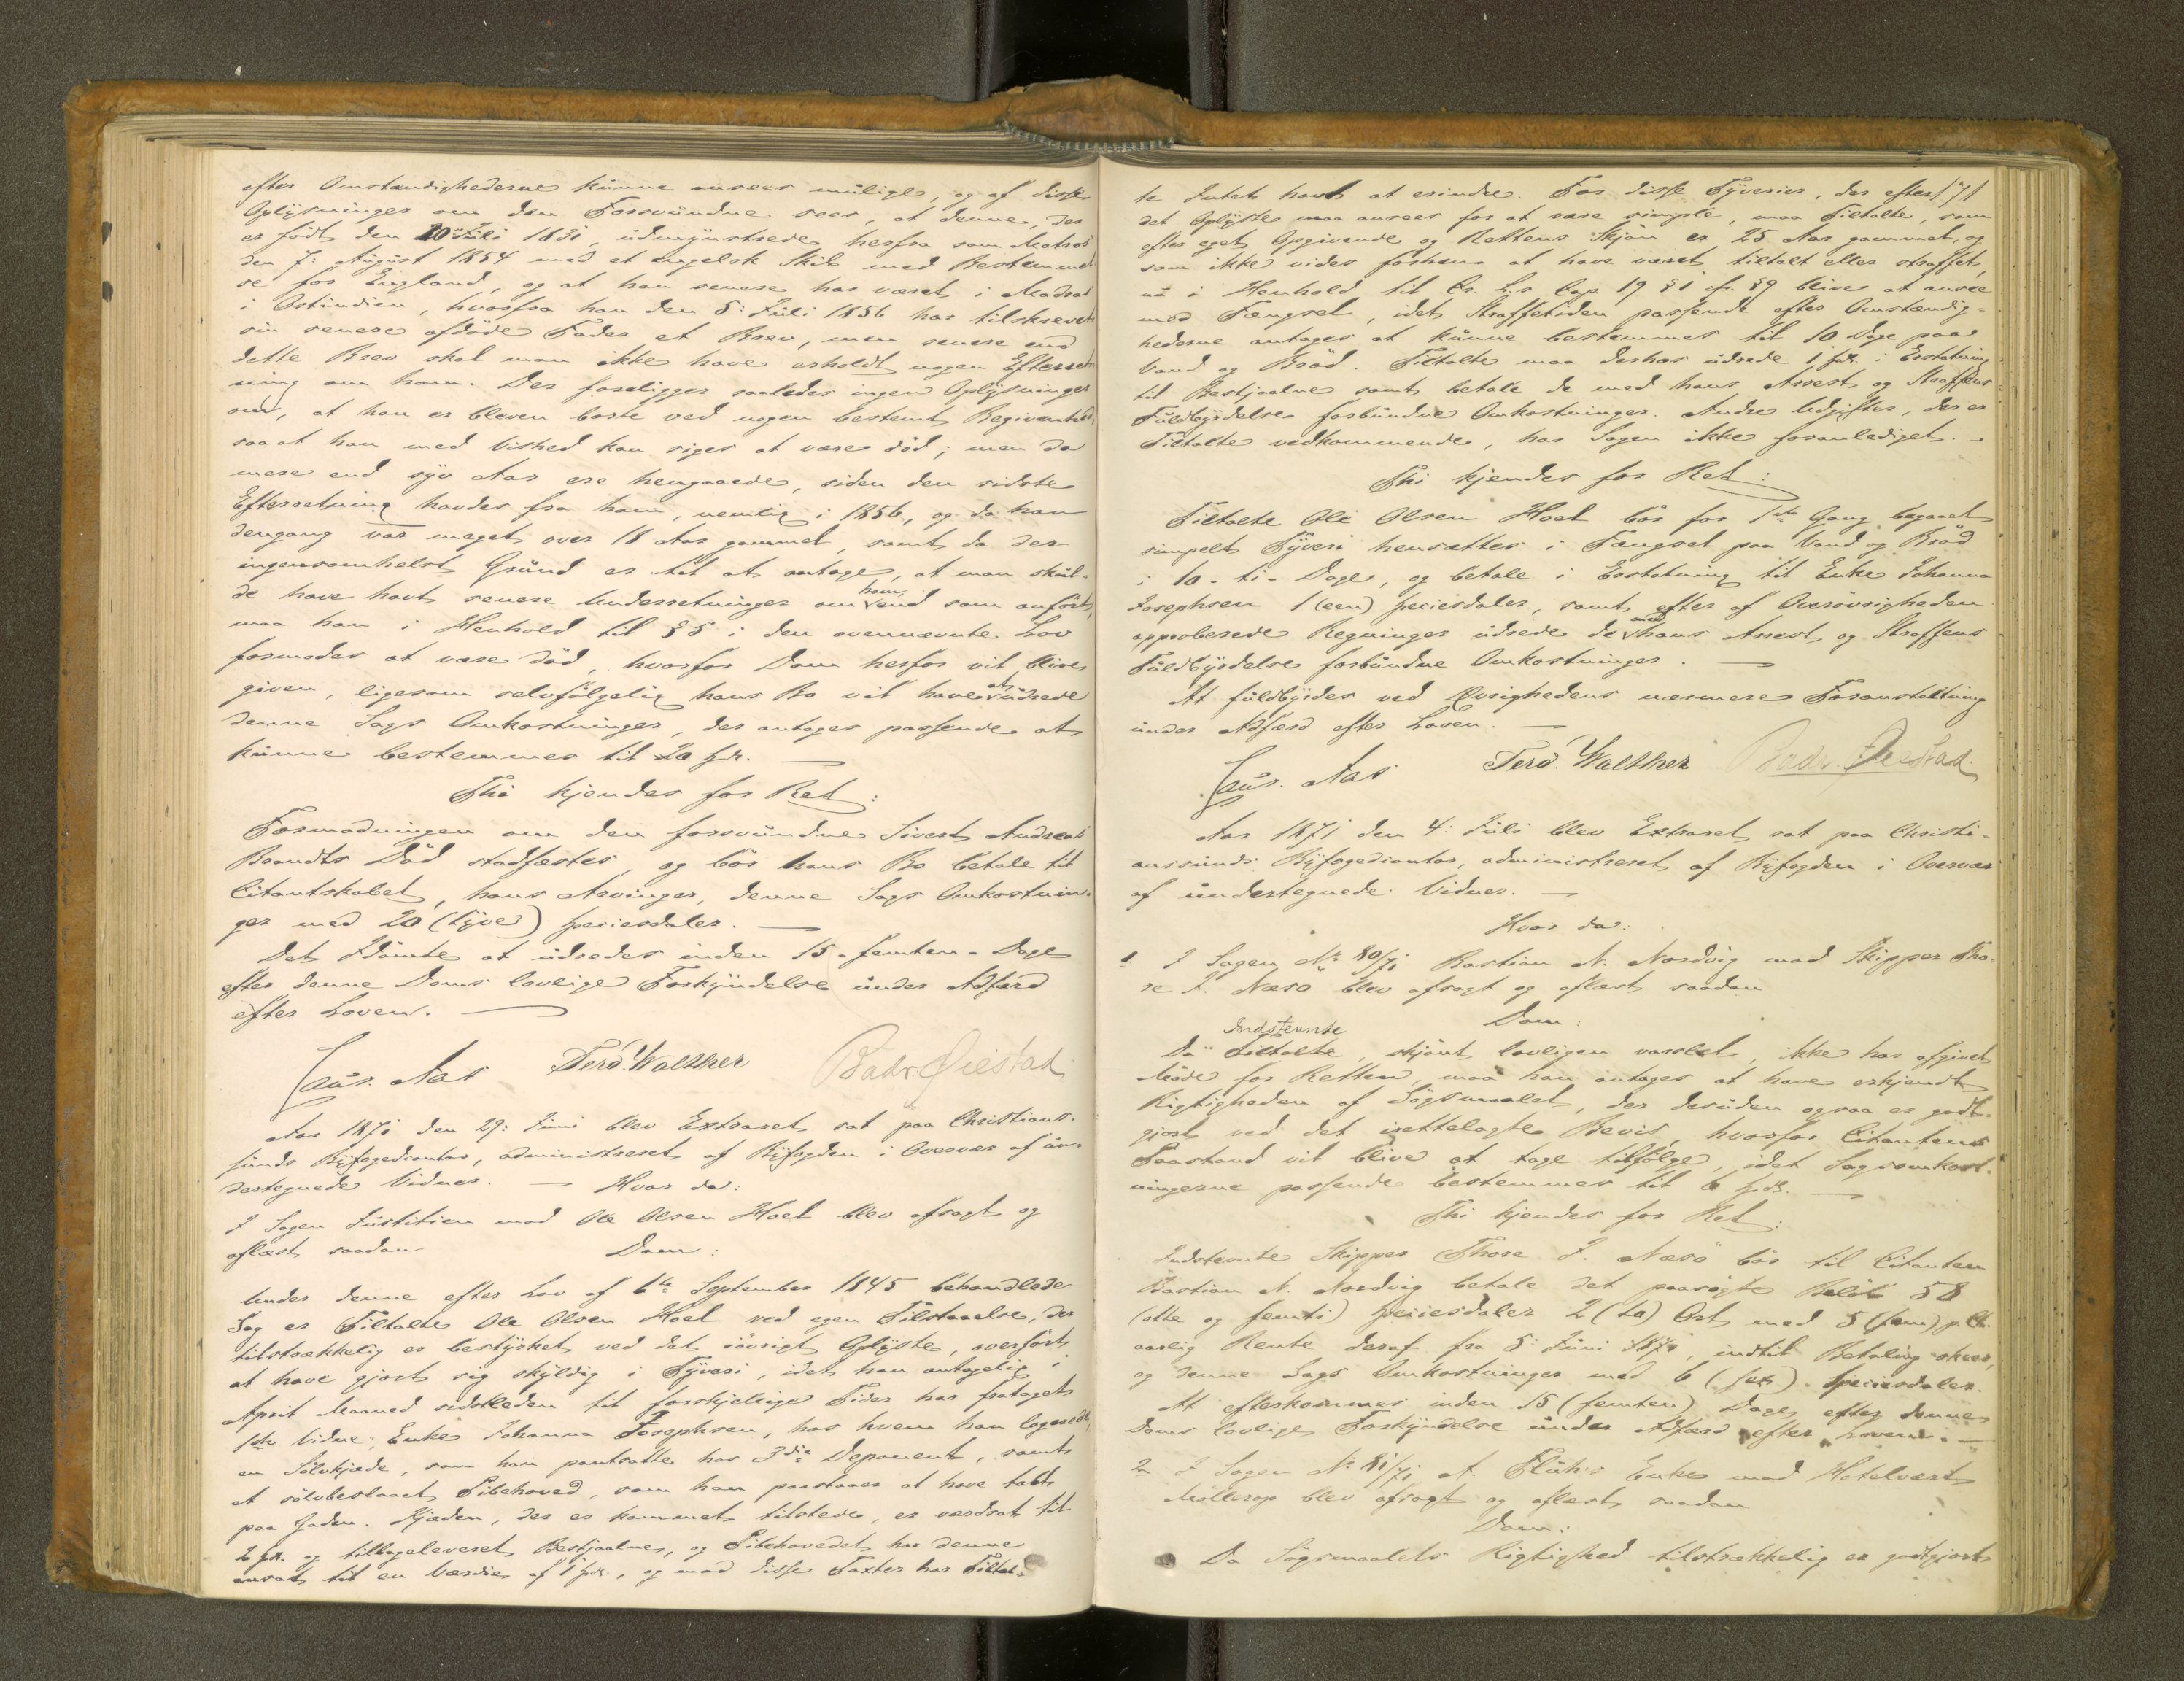 efter Omstændighederne kunne ansees mulige, og af disse
Oplysninger om den Forsvundne sees, at denne, der
er født den 10 Juli 1831, udmynstrede herfra som Matros
den 7: August 1854 med et engelsk Skib med Bestemmel-
se for England, og at han senere har været i Madras
i Ostindien, hvorfra han den 5: Juli 1856 har tilskrevet
sin senere afdöde Fader et Brev, men senere end
dette Brev skal man ikke have erholdt nogen Efterret-
ning om ham. Der foreligger saaledes ingen Oplysninger
om, at han er bleven borte ved nogen bestemt Begivenhed,
saa at han med Vished kan siges at være död; men da
mere end syv Aar ere hengaaede, siden den sidste
Efterretning havdes fra ham, nemlig i 1856, og da han
dengang var meget over 18 Aar gammel, samt da der
ingensomhelst Grund er til at antage, at man skul-
de have havt senere Underretninger om ham end som anfört,
maa han i Henhold til § 5 i den ovennævnte Lov
formodes at være död, hvorfor Dom herfor vil blive
given, ligesom selvfölgelig hans Bo vil have at udrede
denne Sags Omkostninger, der antages passende at
kunne bestemmes til 20 Spdr.
Thi kjendes for Ret:
Formodningen om den forsvundne Sivert Andreas
Brandts Död stadfæstes, og bör hans Bo betale til
Citantskabet, hans Arvinger, denne Sags Omkostnin-
ger med 20 (tyve) Speciesdaler.
Det Idömte at udredes inden 15 - femten - Dage
efter denne Doms lovlige Forkyndelse under Adfærd
efter Loven.
Laur. Aas Ferd. Walther Badr. Øiestad
Aar 1871 den 29: Juni blev Extraret sat paa Christians-
sunds Byfogedcontor, administreret af Byfogden i Overvær af un-
dertegnede Vidner. Hvor da:
I Sagen Justitien mod Ole Olsen Hoel blev afsagt og
aflæst saadan
Dom:
Under denne efter Lov af 6te September 1845 behandlede
Sag er Tiltalte Ole Olsen Hoel ved egen Tilstaaelse, der
tilstrækkelig er bestyrket ved det iövrigt Oplyste, overført
at have gjort sig skyldig i Tyveri, idet han antagelig i
April Maaned sidstleden til forskjellige Tider har frataget
1ste Vidne, Enke Johanna Josephsen, hos hvem han logerede,
en Sölvkjæde, som han pantsatte hos 3die Deponent, samt
et sölvbeslaaet Pibehoved, som han paastaaer at have tabt
paa Gaden. Kjæden, der er kommet tilstede, er værdsat til
2 Spdr. og tilbageleveret Bestjaalne, og Pibehovedet har denne
ansat til en Værdie af 1 Spdr., og mod disse Taxter har Tiltal-
171
te Intet havt at erindre. For disse Tyverier, der efter
det Oplyste maa ansees for at være simple, maa Tiltalte, som
efter eget Opgivende og Rettens Skjön er 25 Aar gammel, og
som ikke vides forhen at have været tiltalt eller straffet,
nu i Henhold til Cr. L.s Cap. 19 § 1 cfr. § 9 blive at ansee
med Fængsel, idet Straffetiden passende efter Omstændig-
hederne antages at kunne bestemmes til 10 Dage paa
Vand og Bröd. Tiltalte maa derhos udrede 1 Spdr. i Erstatning
til Bestjaalne samt betale de med hans Arrest og Straffens
Fuldbyrdelse forbundne Omkostninger. Andre Udgifter, der er
Tiltalte vedkommende, har Sagen ikke foranlediget.
Thi kjendes for Ret:
Tiltalte Ole Olsen Hoel bör for 1ste Gang begaaet
simpelt Tyveri hensættes i Fængsel paa Vand og Bröd
i 10 - ti - Dage, og betale i Erstatning til Enke Johanna
Josephsen 1 (een) Speciesdaler, samt efter af Overøvrigheden
approberede Regninger udrede de med hans Arrest og Straffens
Fuldbyrdelse forbundne Omkostninger.
At fuldbyrdes ved Øvrighedens nærmere Foranstaltning
under Adfærd efter Loven.
Laur. Aas Ferd. Walther Badr. Øiestad
Aar 1871 den 4: Juli blev Extraret sat paa Christi-
anssunds Byfogedcontor, administreret af Byfogden i Overvær
af undertegnede Vidner.
Hvor da:
1 I Sagen No 80/71 Bastian N. Nordvig mod Skipper Tho-
re J. Næsö blev afsagt og aflæst saadan
Dom:
Da Indstevnte Tiltalte, skjönt lovligen varslet, ikke har afgivet
Möde for Retten, maa han antages at have erkjendt
Rigtigheden af Sögsmaalet, der desuden ogsaa er godt-
gjort ved det irettelagte Bevis, hvorfor Citantens
Paastand vil blive at tage tilfölge, idet Sagsomkost-
ningerne passende bestemmes til 6 Spdr.
Thi kjendes for Ret:
Indstevnte Skipper Thore J. Næsö bör til Citanten
Bastian N. Nordvig betale det paasögte Belöb 58
(otte og femti) Speciesdaler 2 (to) Ort med 5 (fem) p.Ct.
aarlig Rente deraf fra 5: Juni 1871, indtil Betaling skeer,
og denne Sags Omkostninger med 6 (sex) Speciesdaler.
At efterkommes inden 15 (femten) Dage efter denne
Doms lovlige Forkyndelse under Adfærd efter Loven.
2 I Sagen No 81/71 A. Enke mod Hotelvært
Möllerop blev afsagt og aflæst saadan
Dom:
Da Sögsmaalets Rigtighed tilstrækkelig er godtgjort